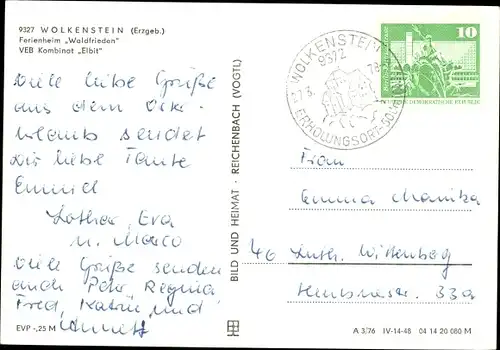 9327 WOLKENSTEIN (Erzgeb.)
Ferienheim „Waldfrieden"
VEB Kombinat „Elbit"
Viele liebe Grüße
aus dem
sendet
Dir liebe Tante
Lothar, Eva
u. Marco
Viele Grüße senden
auch Peter, Regina
Fred, Katrin und
Annett
EVP -,25 M
BILD UND HEIMAT · REICHENBACH (VOGTL)
WOLKENSTEIN
9372
ERHOLUNGSORT
10
DEUTSCHE DEMOKRATISCHE REPUBLIK
Frau
Emma
46 Luth. Wittenberg
33a
A 3/76 IV-14-48 04 14 20 080 M